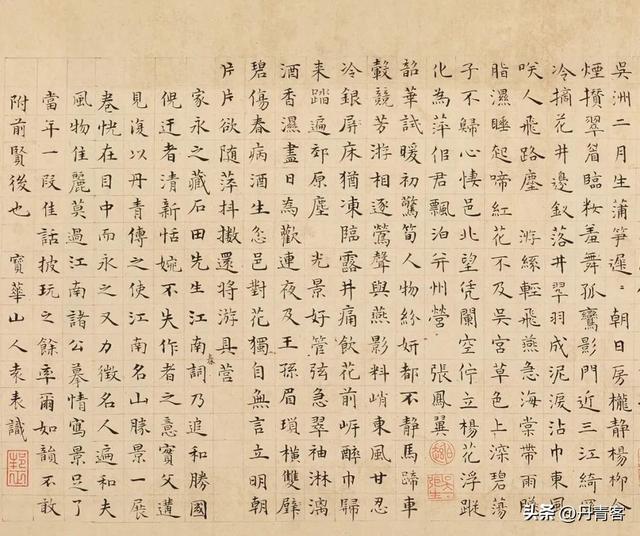 吳洲二月生蒲筍遲。朝日房櫳靜楊柳含
煙攢翠臨妝羞舞孤鸞影門近三江綺羅
冷摘花井邊釵落井翠羽成泥淚沾巾東風
咲人飛路塵 游絲輕飛燕急海棠帶雨臙
脂濕睡起啼紅花不及吳宮草色上深碧蕩
子不歸心悽邑北望凭闌空佇立楊花浮蹤
化為萍佀君飄泊并州營 張鳳翼
韶華試暖初驚筍人物紛妍都不靜馬蹄車
轂競芳游相逐鶯聲與燕影料峭東風甘忍
冷銀屏床猶凍臨露井痛飲花前岸醉巾歸
来踏遍郊原塵 光景好管弦急翠袖淋漓
酒香濕盡日為歡連夜及王孫眉瑣橫雙璧
碧傷春病酒生忩邑對花獨自無言立明朝
片片欲随萍抖擻還將游具营
家永之藏石田先生江南春詞乃追和勝國
倪迂者清新恬婉不失作者之意實父遺
見復以丹青傳之使江南名山勝景一展
卷恍在目中而永之又力徵名人遍和夫
風物佳麗莫過江南諸公摹情寫景足了
當年一段佳話披玩之餘率爾如韻不敢
附前賢後也 寳華山人袁表識
头条 @丹青客